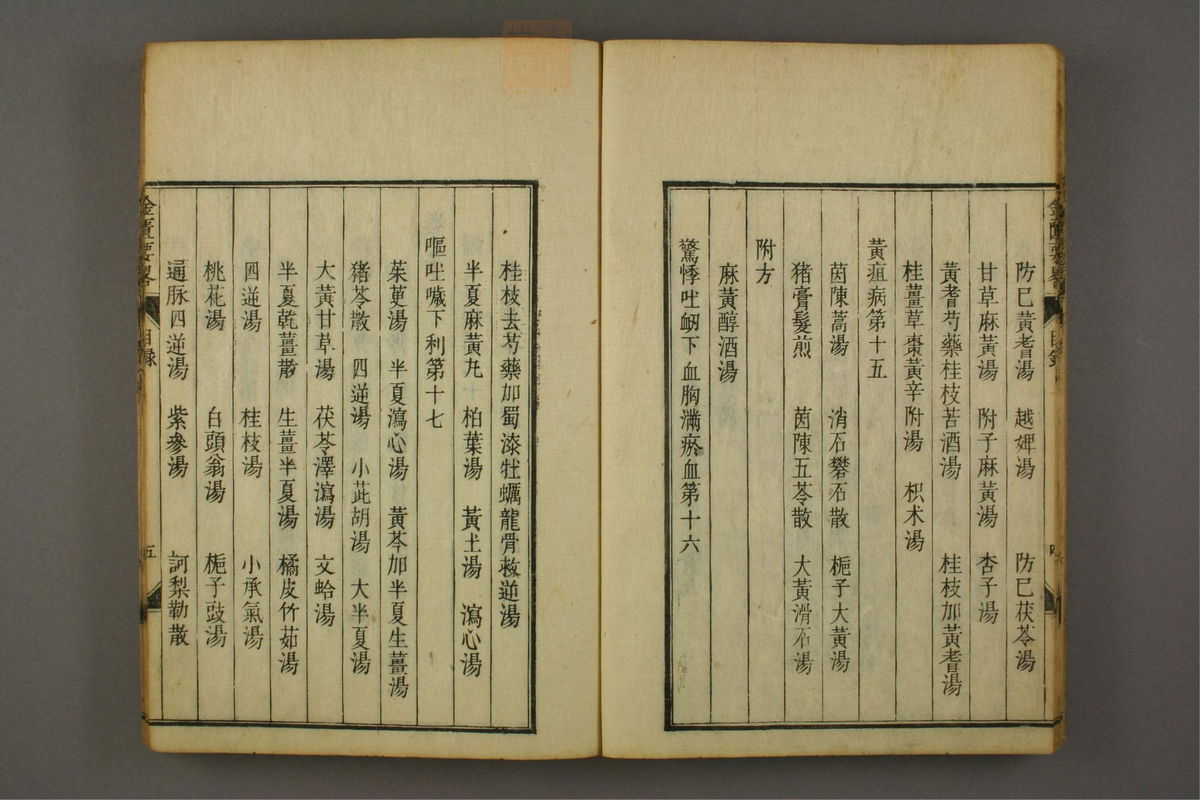 防巳黃耆湯　越婢湯　防巳茯苓湯
甘草麻黃湯　附子麻黃湯　杏子湯
黃耆芍藥桂枝苦酒湯　桂枝加黃耆湯
桂薑草棗黃辛附湯　枳术湯
黃疸病第十五
茵陳蒿湯　消石礬石散　梔子大黃湯
猪膏髮煎　茵陳五苓散　大黃滑石湯
附方
麻黃醇酒湯
驚悸吐衂下血胸滿瘀血第十六
桂枝去芍藥加蜀漆牡蠣龍骨救逆湯
半夏麻黃丸　柏葉湯　黃土湯　瀉心湯
嘔吐噦下利第十七
茱萸湯　半夏瀉心湯　黃芩加半夏生薑湯
猪苓散　四逆湯　小茈胡湯　大半夏湯
大黃甘草湯　茯苓澤瀉湯　文蛤湯
半夏乾薑散　生薑半夏湯　橘皮竹茹湯
四逆湯　桂枝湯　小承氣湯
桃花湯　白頭翁湯　梔子豉湯
通脉四逆湯　紫參湯　訶梨勒散
金匱要畧　目録　五